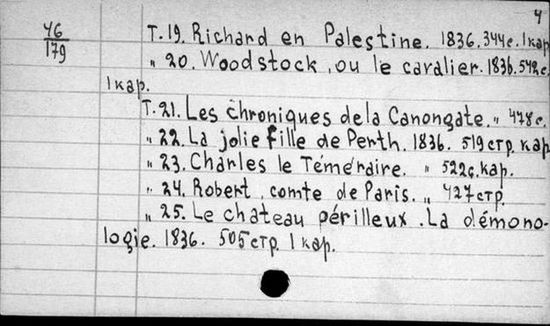 4
46
179
Т. 19. Richard en Palestine. 1836. 344 с. 1 кар
" 20. Woodstock, ou le cavalier. 1836. 548 с.
1 кар.
Т. 21. Les chroniques de la Canongate. " 478 с.
" 22. La jolie fille de Perth. 1836. 519 стр. кар
" 23. Charles le Téméraire. " 522 с. кар.
" 24. Robert, comte de Paris. " 427 стр.
" 25. Le chateau périlleux. La démono-
logie. 1836. 505 стр. 1 кар.